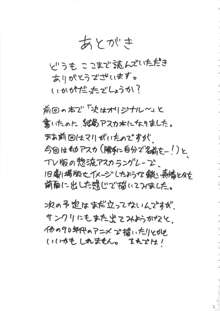 あとがき
どうも ここまで読んでいただき
ありがとうございます。
いかがだったでしょうか？
前回の本で「次はオリジナル〜」と
書いたのに 結局アスカ本になりました。
まあ前回はマリがいたのですが、
今回はアスカ（勝手に自分で名を…!）と、
TV版の惣流アスカラングレーで、
旧劇場版をイメージしたような 表情とかを
前面に出した感じで描いてみました。
次の予定はまだ立ってないんですが、
サンクリにもまた出てみようかなと、
他の90年代のアニメで描いたりとかも
いいかもしれません。 それでは!